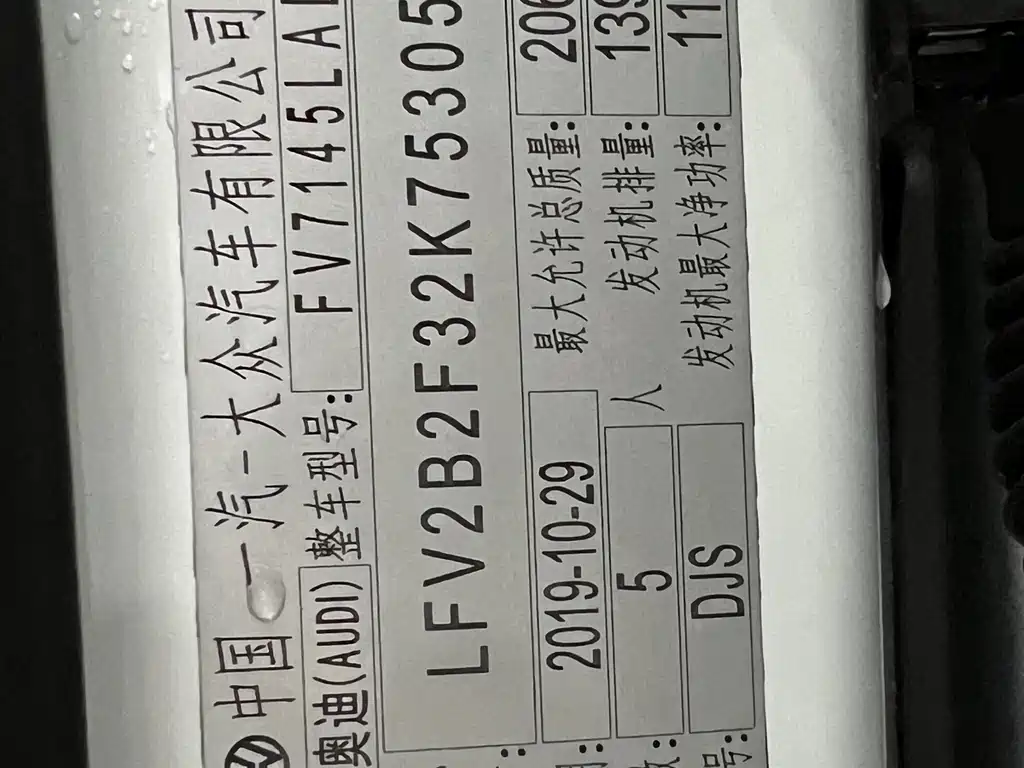 中国一汽-大众汽车有限公司
奥迪(AUDI) 整车型号: FV7145LA
LFV2B2F32K75305
: 2019-10-29 最大允许总质量: 206
: 5 人 发动机排量: 139
号: DJS 发动机最大净功率: 11